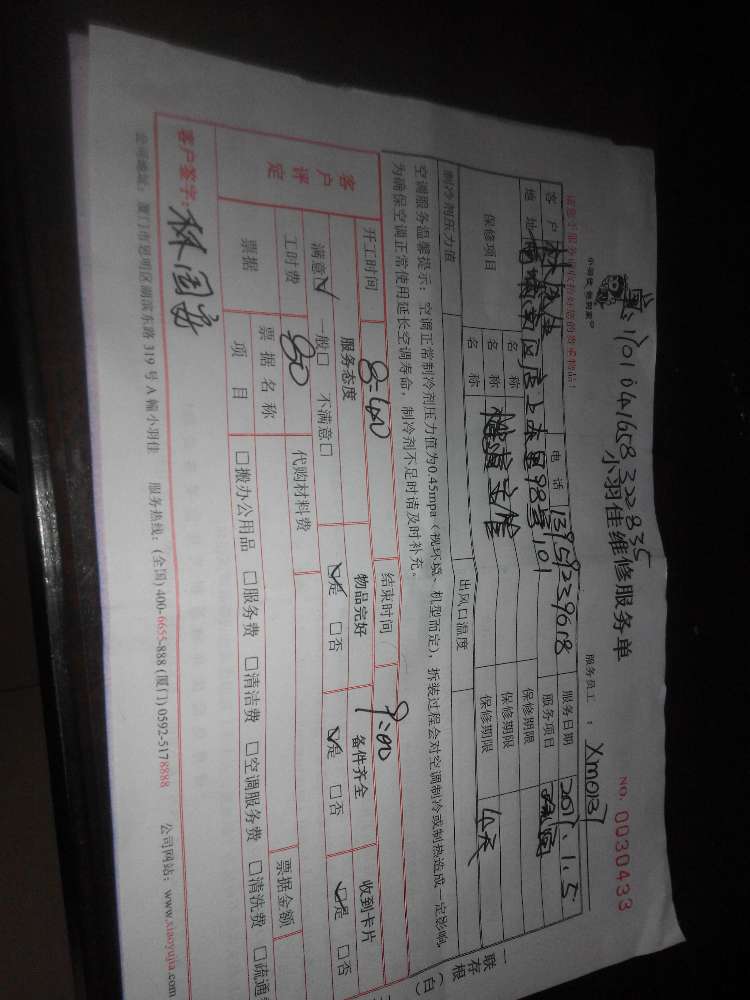 170104165832835
小羽佳 您的管家
小羽佳维修服务单
NO. 0030433
服务员工 : Xm0137
请您于服务前收拾好您的贵重物品!
客户 电话 13959239618 服务日期 2017.1.5
地址 98号101 服务项目
保修项目 名称 保修期限
名称 保修期限
名称 保修期限
制冷剂压力值 出风口温度
空调服务温馨提示:空调正常制冷剂压力值为0.45mpa(视环境、机型而定),拆装过程会对空调制冷或制热造成一定影响,
为确保空调正常使用延长空调寿命,制冷剂不足时请及时补充。
一联存根(白)
客户评定
开工时间 8:40 结束时间 9:00
服务态度 物品完好 备件齐全 收到卡片
满意☑ 一般□ 不满意□ ☑是 □否 ☑是 □否 ☑是 □否
工时费 80 代购材料费
票据 票据名称 票据金额
项目 □搬办公用品 □服务费 □清洁费 □空调服务费 □清洗费 □疏通
客户签字: 林国安
公司地址:厦门市思明区湖滨东路319号A幢小羽佳 服务热线:(全国)400-6655-888 (厦门)0592-5178888 公司网站:www.xiaoyujia.com